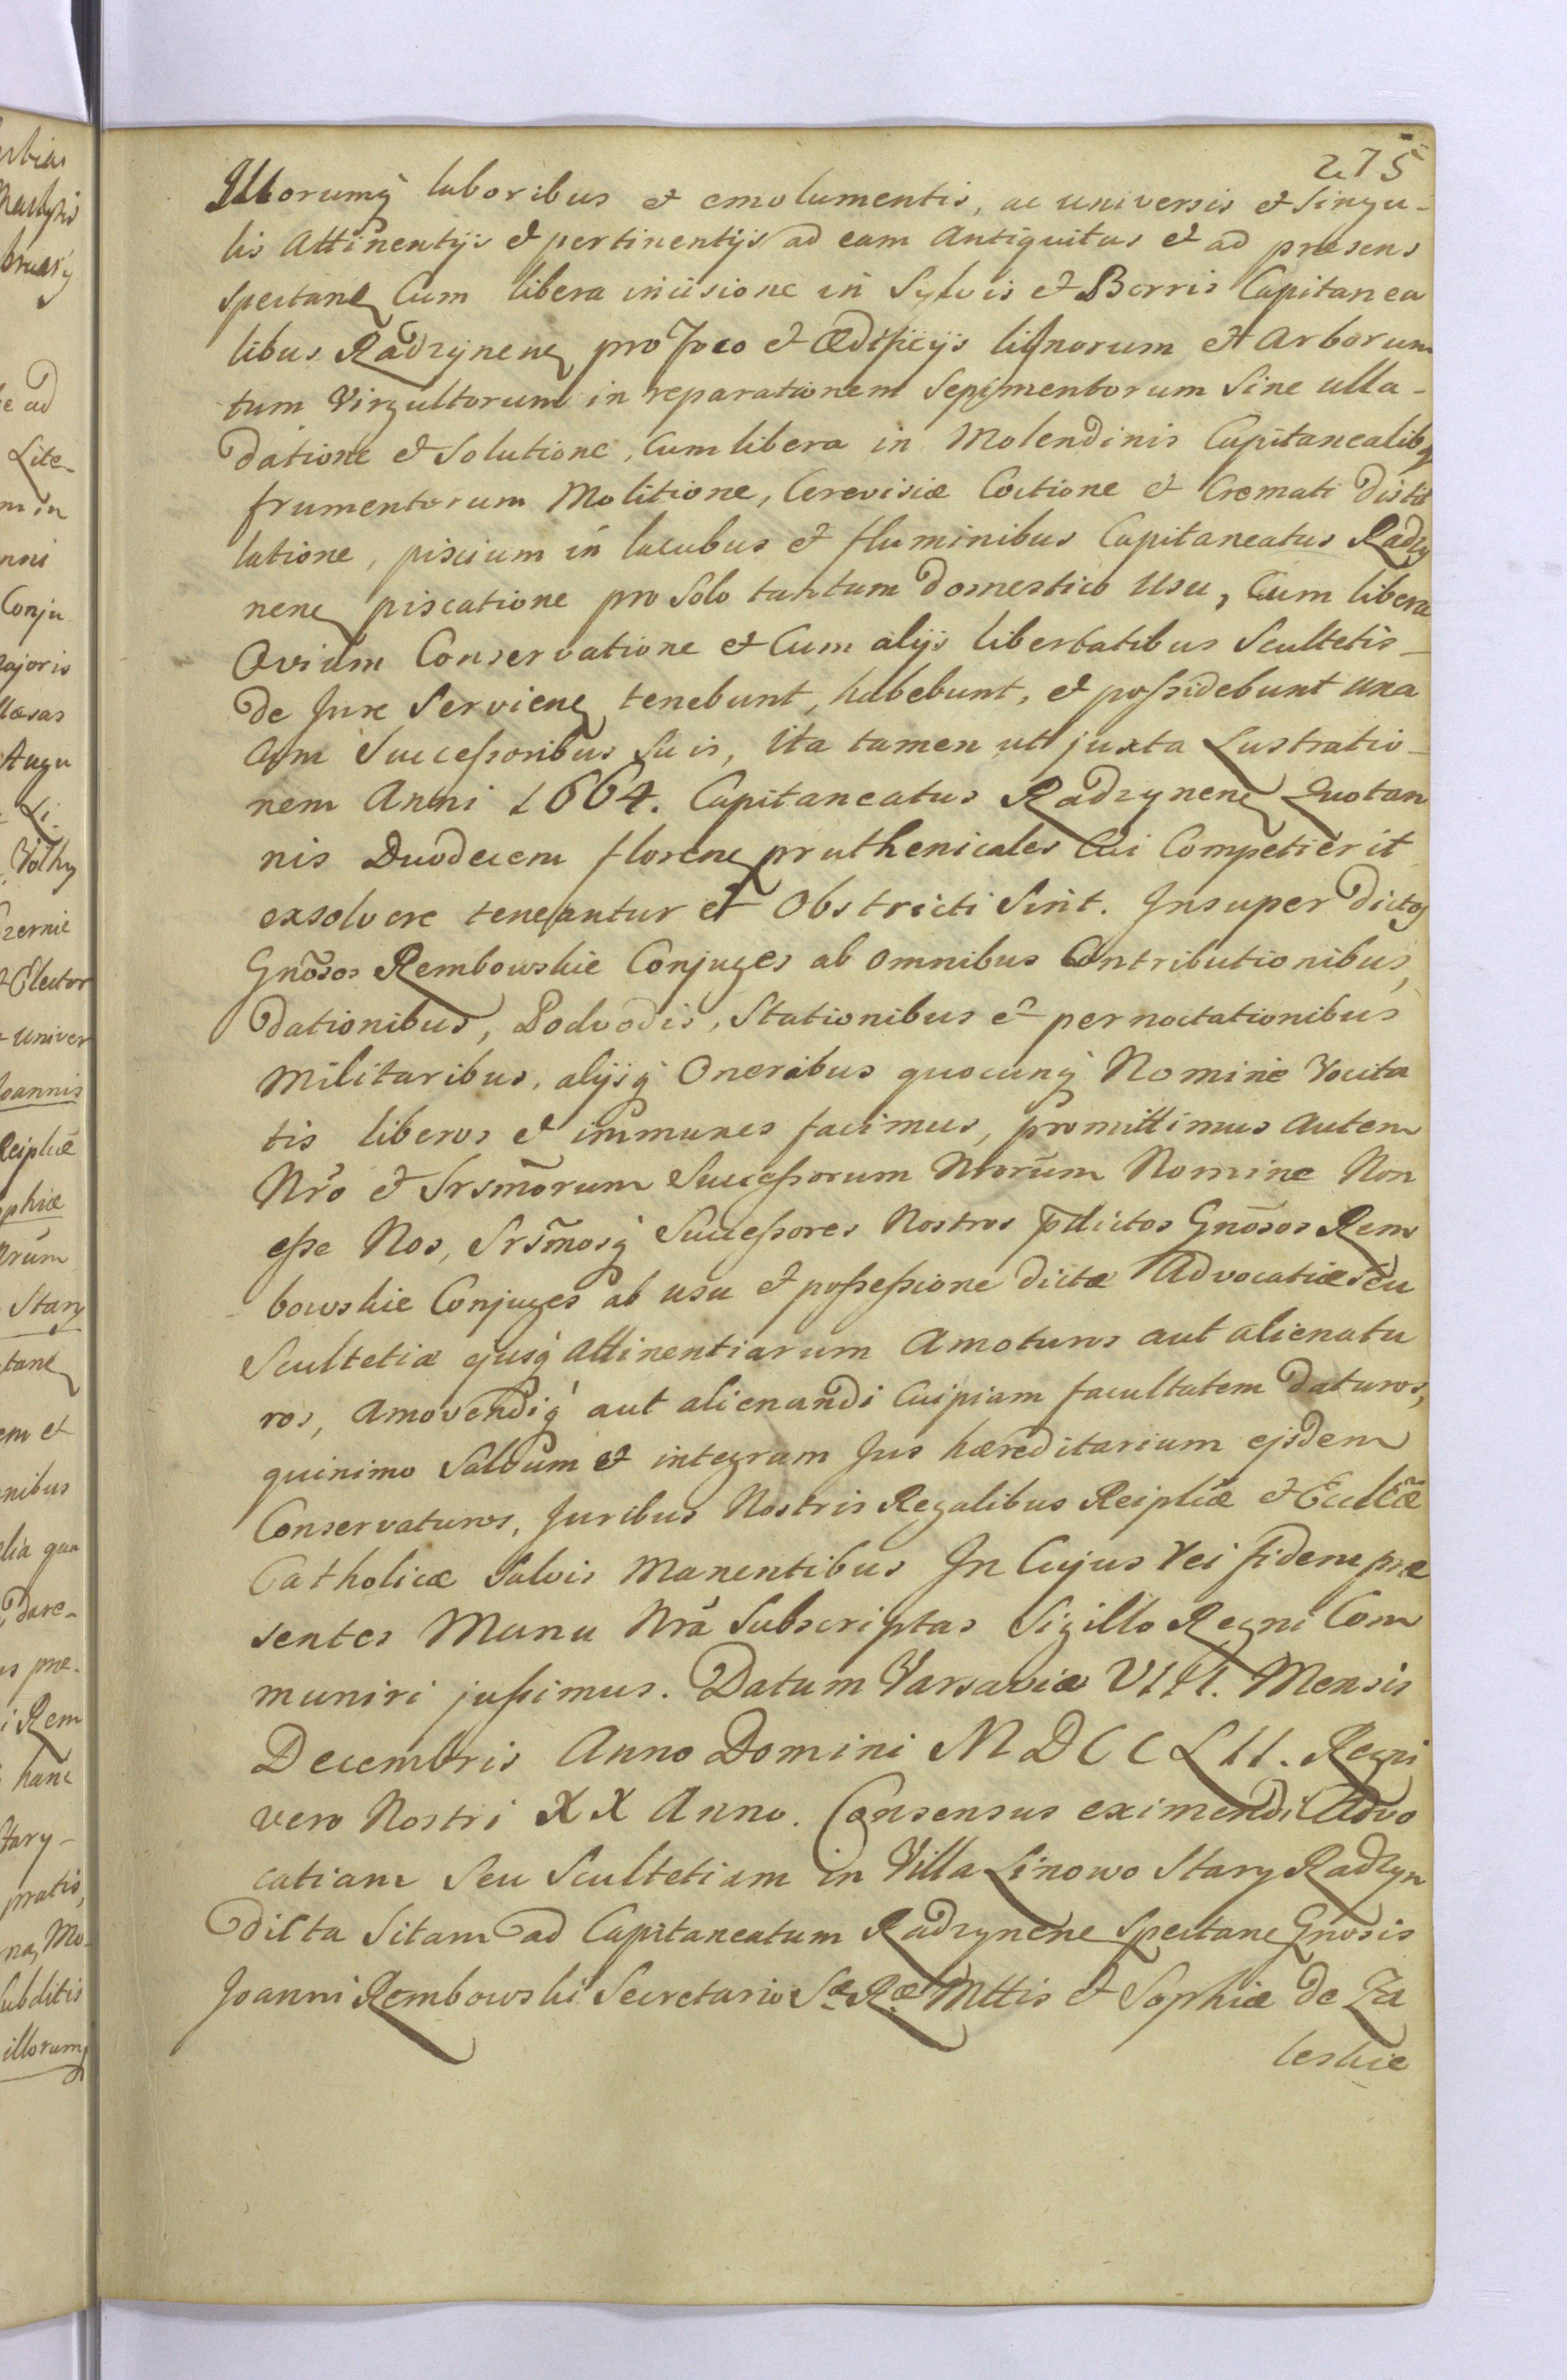 275
Illorumq́ laboribus et emolumentis, ac universis et singu-
lis Attinentijs et pertinentijs ad eam Antiquitus et ad præsens
spectanę Cum libera incisione in Sylvis et Borris Capitanea
libus Radzynenę pro foco et Ædificijs lignorum et Arborum
tum Virgultorum in reparationem Sepimentorum Sine ulla-
datione et Solutione, Cum libera in Molendinis Capitanealibq
frumentorum Molitione, Cerevisiæ Coctione et Cremati distil
latione, piscium in lacubus et fluminibus Capitaneatus Radzy
nenę piscatione pro Solo tantum domestico Usu, Cum libera
Ovium Conservatione et Cum alijs libertatibus Scultetis-
de Jure Servienę tenebunt, habebunt, et poſsidebunt una
Cum Succeſsoribus Suis, Ita tamen ut juxta Lustratio-
nem Anni 1664. Capitaneatus Radzynenę Quotan
nis Duodecem florenę pruthenicales Cui Competierit
exsolvere teneantur et Obstricti Sint. Insuper dictos
Gnõsos Rembowskie Conjuges ab omnibus Contributionibus,
dationibus, Podvodis, Stationibus et pernoctationibus
Militaribus, alijsq́ Oneribus quocunq́ Nomine Vocita
tis liberos et immunes facimus, promittimus autem
Nr̃o et Srsm̃orum Succeſsorum Nrorũm Nomine Non
eſse Nos, Srsm̃osq́ Succeſsores Nostros p̃dictos Gnõsos Rem
bowskie Conjuges ab usu et poſseſsione dictæ Advocatiæ Seu
Scultetiæ ejusq́ attinentiarum Amoturos aut alienatu
ros, Amovendiq́ aut alienandi Cuipiam facultatem daturos,
quinimo Salvum et integrum Jus hæreditarium ejsdem
Conservaturos, Juribus Nostris Regalibus Reipl̃cæ et Eccl̃æ
Catholicæ Salvis Manentibus In Cujus rei fidem præ
sentes Manu Nrã Subscriptas Sigillo Regni Com
muniri juſsimus. Datum Varsaviæ VIII. Mensis
Decembris Anno Domini MDCCLII. Regni
vero Nostri XX Anno. Consensus eximendi Advo
catiam Seu Scultetiam in Villa Linowo Stary Radzyn
dicta Sitam ad Capitaneatum Radzynenę Spectanę Gnosis
Joanni Rembowski Secretario Sæ Ræ Mttis et Sophiæ de Za
leskie